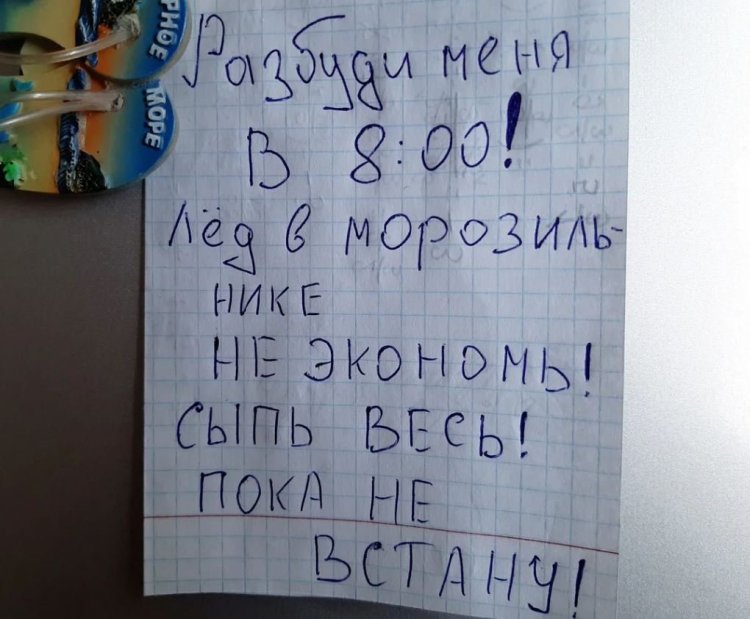 ЧЁРНОЕ
МОРЕ
Разбуди меня
В 8:00!
Лёд в морозиль-
нике
НЕ ЭКОНОМЬ!
СЫПЬ ВЕСЬ!
ПОКА НЕ
ВСТАНУ!